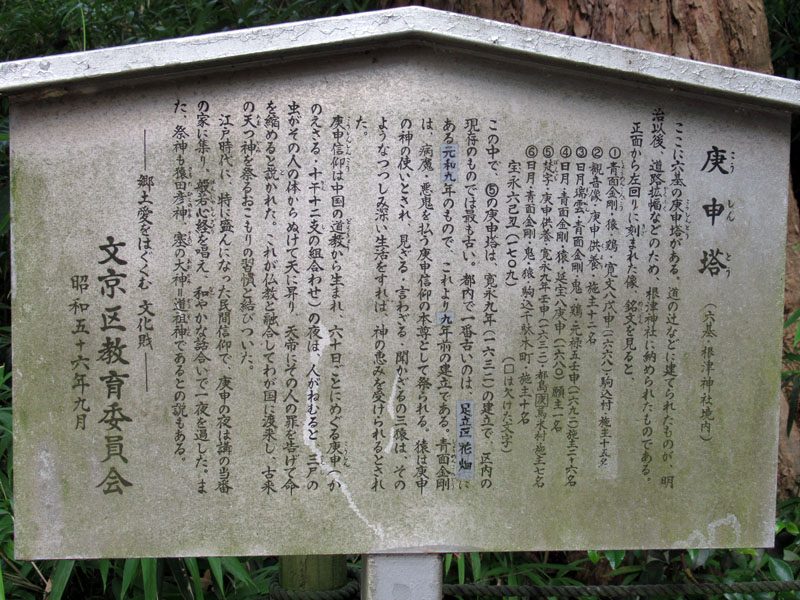 庚申塔 (六基・根津神社境内)
ここに六基の庚申塔がある。道の辻などに建てられたものが、明
治以後、道路拡幅などのため、根津神社に納められたものである。
正面から左回りに刻まれた像、銘文を見ると、
①青面金剛・猿・鶏・寛文八戊申(一六六八)駒込村・施主十五名
②観音像・庚申供養・施主十二名
③日月瑞雲・青面金剛・鬼・鶏・元禄五壬申(一六九二)施主二十六名
④日月・青面金剛・猿・延宝八庚申(一六八〇)願主一名
⑤梵字・庚申供養・寛永九年壬申(一六三二)都島
⑥日月・青面金剛・鬼・猿・駒込千駄木町・施主十名
宝永六己丑(一七〇九)
(□は欠けた文字)
この中で、⑤の庚申塔は、寛永九年(一六三二)の建立で、区内の
現存のものでは最も古い。都内で一番古いのは、足立区花畑に
ある元和九年のもので、これより九年前の建立である。青面金剛
は、病魔・悪鬼を払う庚申信仰の本尊として祭られる。猿は庚申
の神の使いとされ、見ざる・言わざる・聞かざるの三像は、その
ようなつつしみ深い生活をすれば、神の恵みを受けられるとされ
た。
庚申信仰は中国の道教から生まれ、六十日ごとにめぐる庚申(か
のえさる・十干十二支の組合わせ)の夜は、人がねむると、三尸の
虫がその人の体からぬけて天に昇り、天帝にその人の罪を告げて命
を縮めると説かれた。これが仏教と融合してわが国に渡来し、古来
の天つ神を祭るおこもりの習慣と結びついた。
江戸時代に、特に盛んになった民間信仰で、庚申の夜は講の当番
の家に集り、般若心経を唱え、和やかな話合いで一夜を過した。ま
た、祭神も猿田彦神、塞の大神=道祖神であるとの説もある。
――郷土愛をはぐくむ 文化財――
文京区教育委員会
昭和五十六年九月